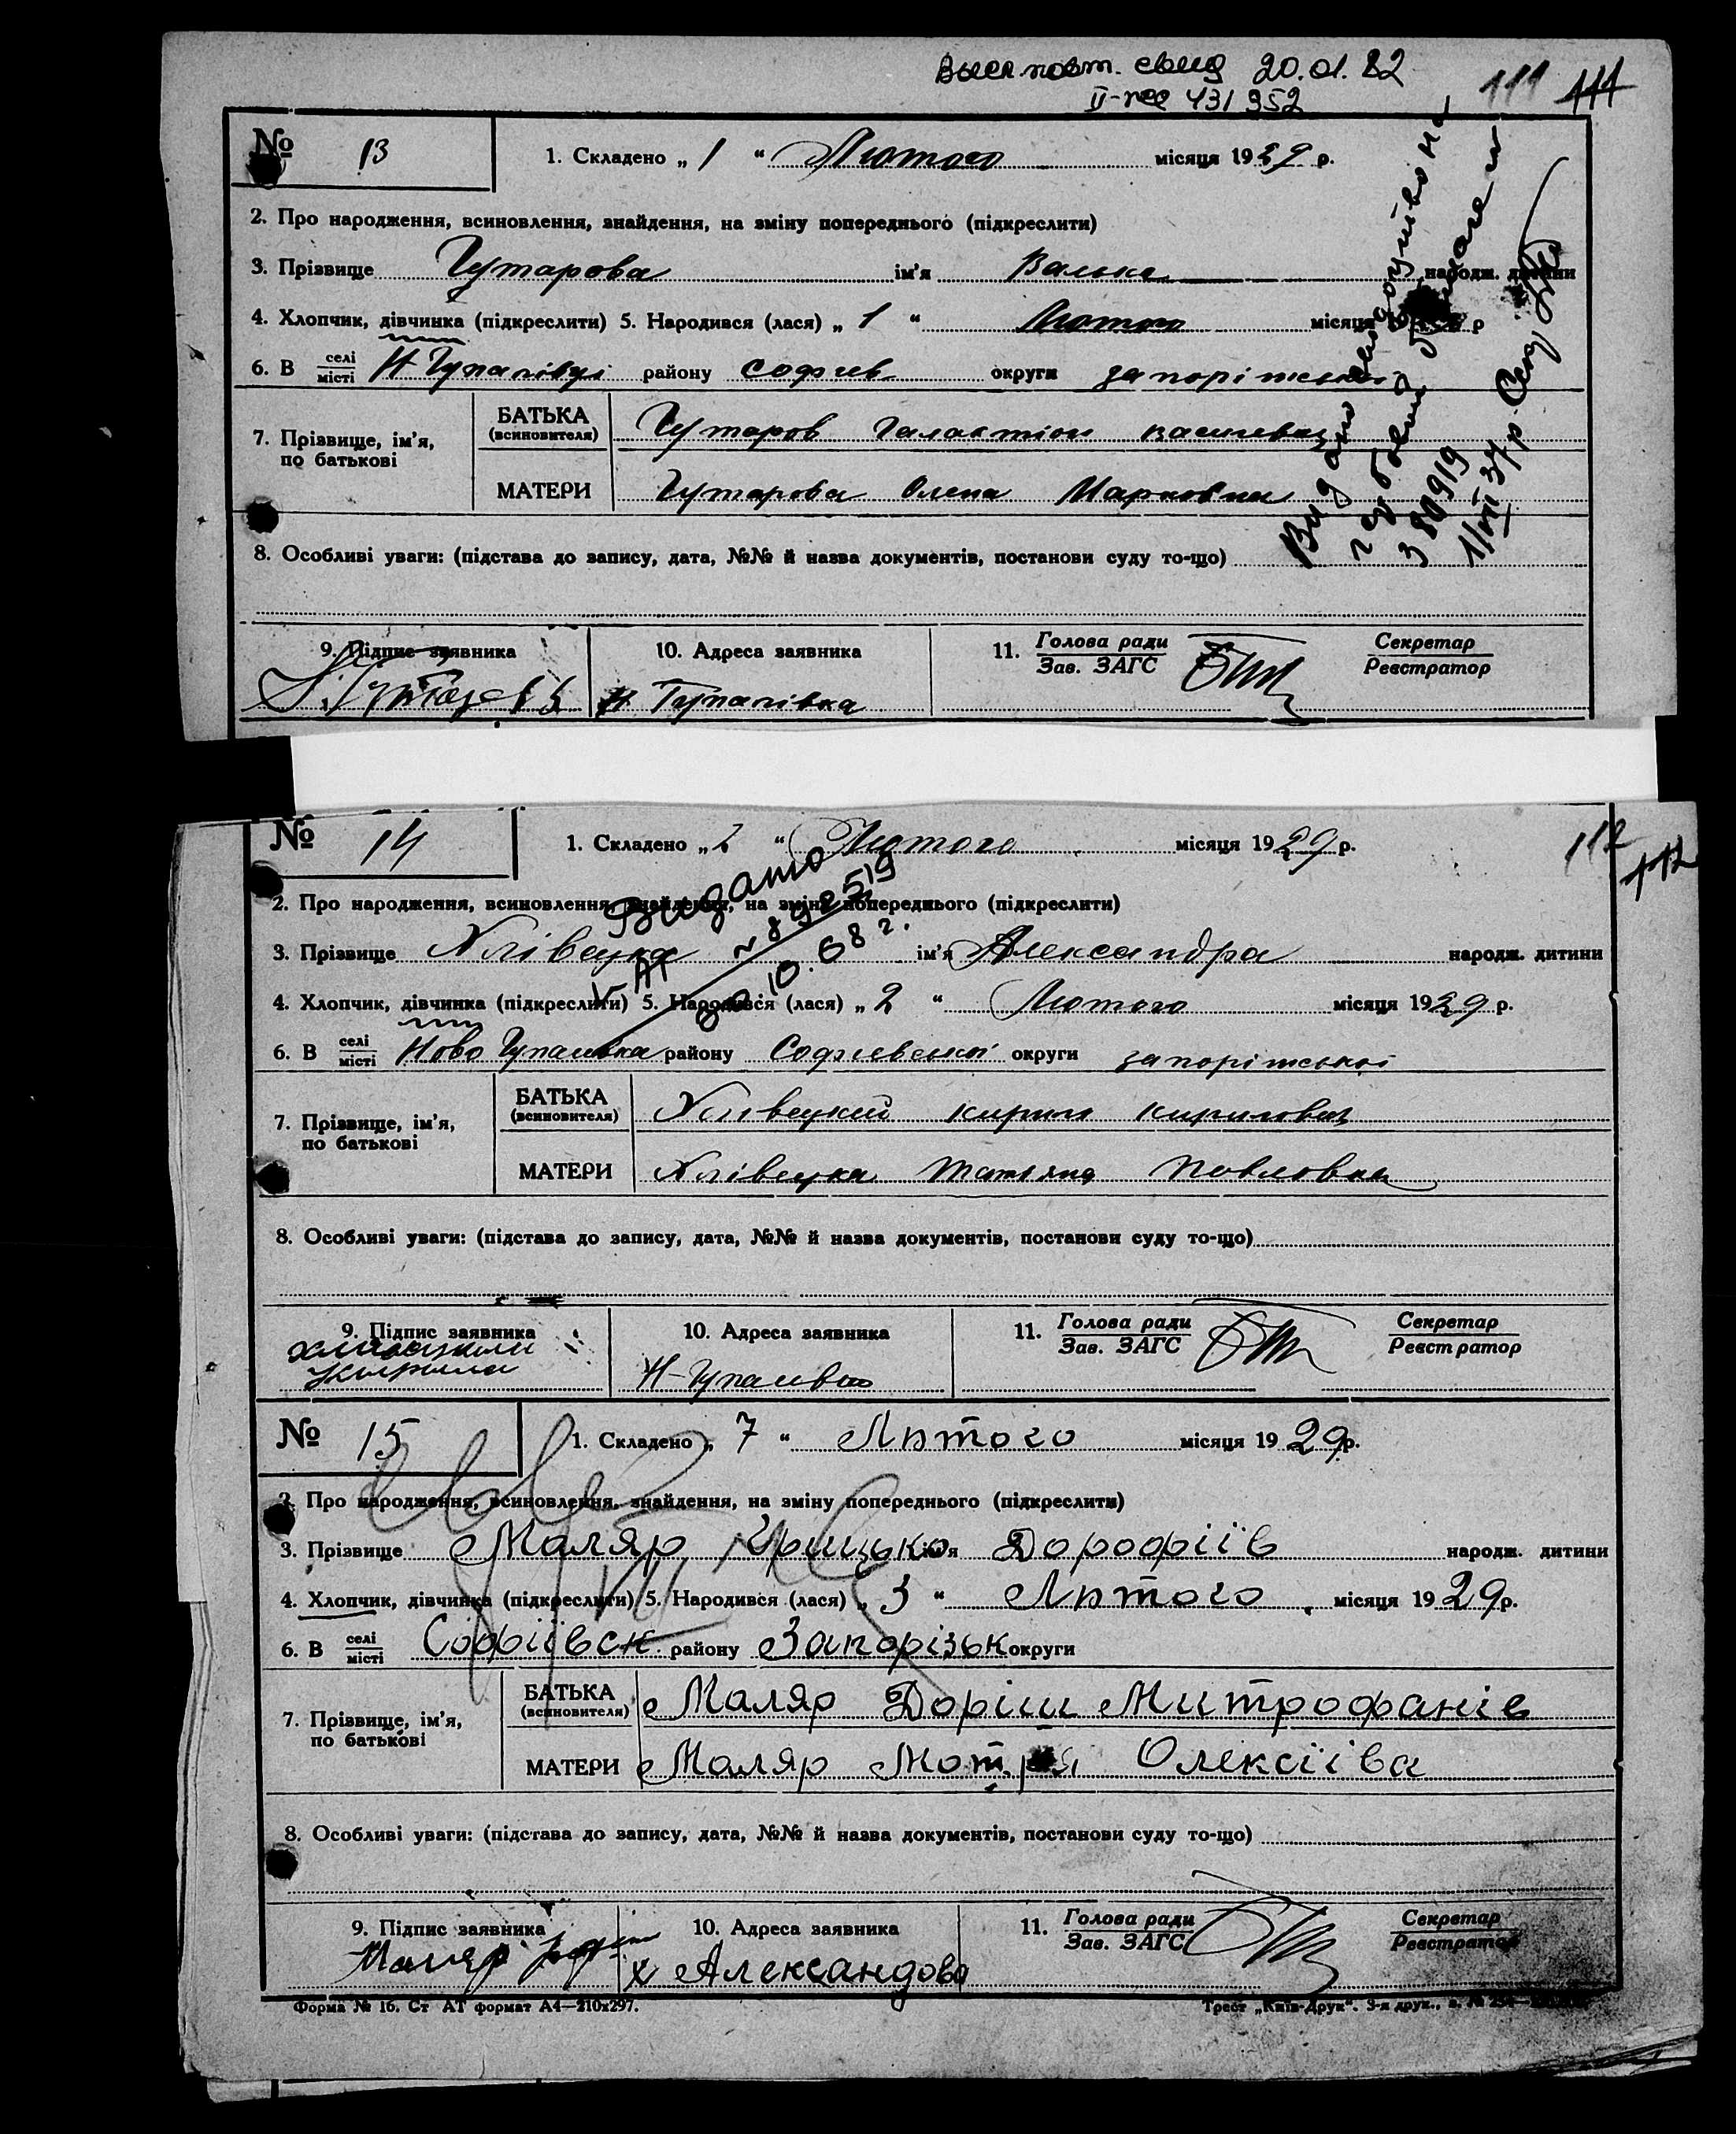 Выся повт. свид 20.01.82
II-ЖС 431952
111 111
№ 13
1. Складено „ 1 “ Лютого місяця 1929 р.
2. Про народження, всиновлення, знайдення, на зміну попереднього (підкреслити)
3. Прізвище Гутарова ім’я Валька народж. дитини
4. Хлопчик, дівчинка (підкреслити) 5. Народився (лася) „ 1 “ Лютого місяця р
6. В селі місті Н Гупалівці району Софіев округи запоріжської
7. Прізвище, ім’я, по батькові
БАТЬКА (всиновителя) Гутаров Галактіон василевич
МАТЕРИ Гутарова Олена Марковна
8. Особливі уваги: (підстава до запису, дата, №№ й назва документів, постанови суду то-що)
Видано
380919
1/VII 37 р.
9. Підпис заявника
10. Адреса заявника
Н Гупалівка
11. Голова ради
Зав. ЗАГС
Секретар
Реєстратор
№ 14
1. Складено „ 2 “ Лютого місяця 1929 р.
112 112
2. Про народження, всиновлення, знайдення, на зміну попереднього (підкреслити)
Видано
V-АП № 898519
10.68 г.
3. Прізвище Хлівецка ім’я Александра народж. дитини
4. Хлопчик, дівчинка (підкреслити) 5. Народився (лася) „ 2 “ Лютого місяця 1929 р.
6. В селі місті Ново Гупаливка району Софиевської округи запоріжської
7. Прізвище, ім’я, по батькові
БАТЬКА (всиновителя) Хлівецкий кирило кирилович
МАТЕРИ Хлівецка Татяна Повловна
8. Особливі уваги: (підстава до запису, дата, №№ й назва документів, постанови суду то-що)
9. Підпис заявника
10. Адреса заявника
Н-Гупаливка
11. Голова ради
Зав. ЗАГС
Секретар
Реєстратор
№ 15
1. Складено „ 7 “ Лютого місяця 1929 р.
2. Про народження, всиновлення, знайдення, на зміну попереднього (підкреслити)
3. Прізвище Маляр Грицько ім’я Дорофіїв народж. дитини
4. Хлопчик, дівчинка (підкреслити) 5. Народився (лася) „ 3 “ Лютого місяця 1929 р.
6. В селі місті Софіївск району Запорізьк округи
7. Прізвище, ім’я, по батькові
БАТЬКА (всиновителя) Маляр Доріш Митрофанів
МАТЕРИ Маляр Мотря Олексіїва
8. Особливі уваги: (підстава до запису, дата, №№ й назва документів, постанови суду то-що)
9. Підпис заявника
Маляр
10. Адреса заявника
х Александово
11. Голова ради
Зав. ЗАГС
Секретар
Реєстратор
Форма № 16. Ст АТ формат А4—210х297.
Трест „Київ-Друк“. 3-я друк.,